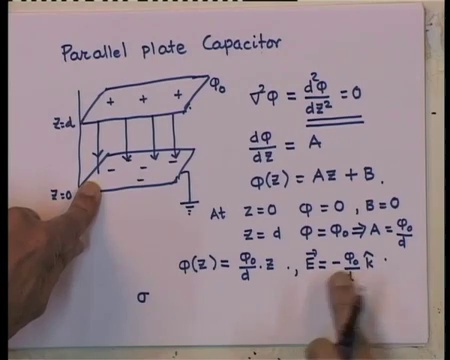 Parallel plate Capacitor
φ₀
+ + +
z=d
- - - -
z=0
∇²φ = d²φ/dz² = 0
dφ/dz = A
φ(z) = Az + B.
At z=0 φ=0, B=0
z=d φ=φ₀ ⇒ A = φ₀/d
φ(z) = φ₀/d · z ., E⃗ = - φ₀/d k̂ .
σ